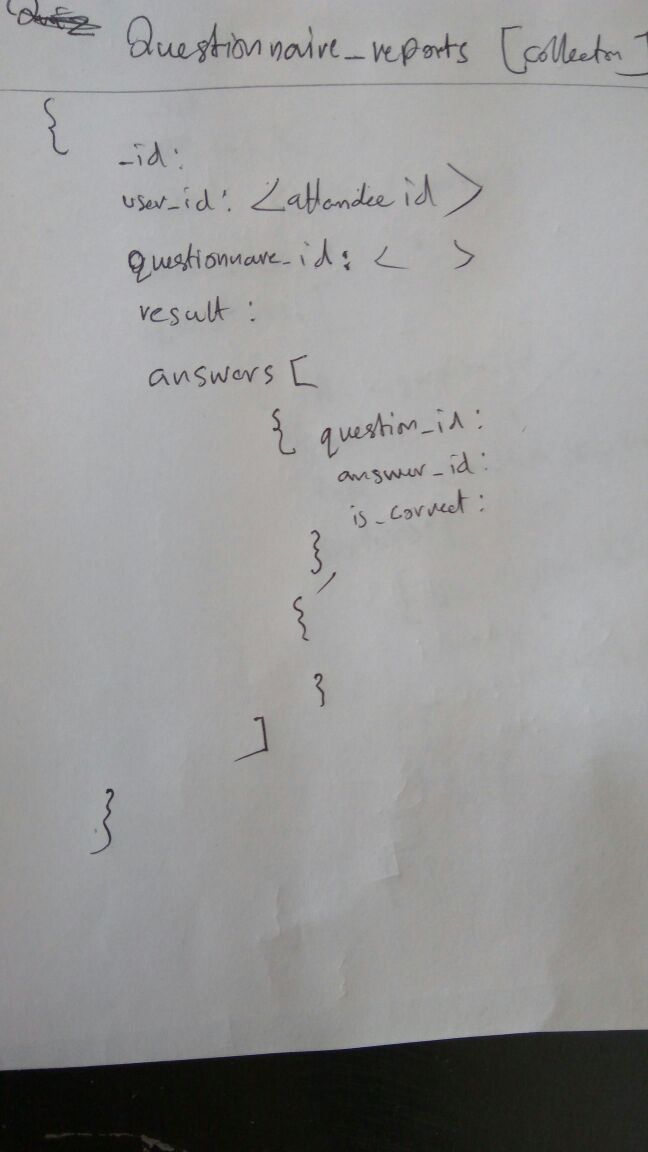 Quiz Questionnaire_reports [collection]
{
_id:
user_id: <attandee id>
questionnare_id: < >
result :
answers [
{ question_id:
answer_id:
is_correct:
}
,
{
}
]
}